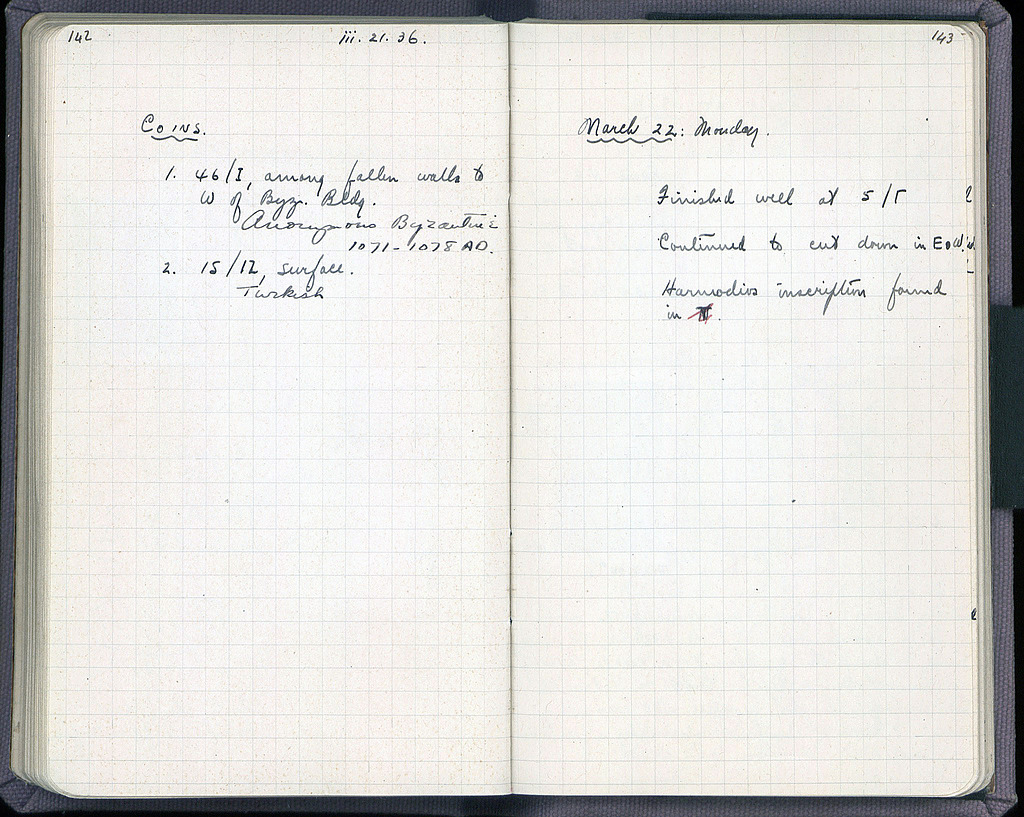 142
iii. 21. 36.
Coins.
1. 46/I, among fallen walls to
W of Byz. Bldg.
Anonymous Byzantine
1071-1078 AD.
2. 15/IZ, surface.
Turkish
143
March 22: Monday.
Finished well at 5/Γ
Continued to cut down in E
Harmodios inscription found
in